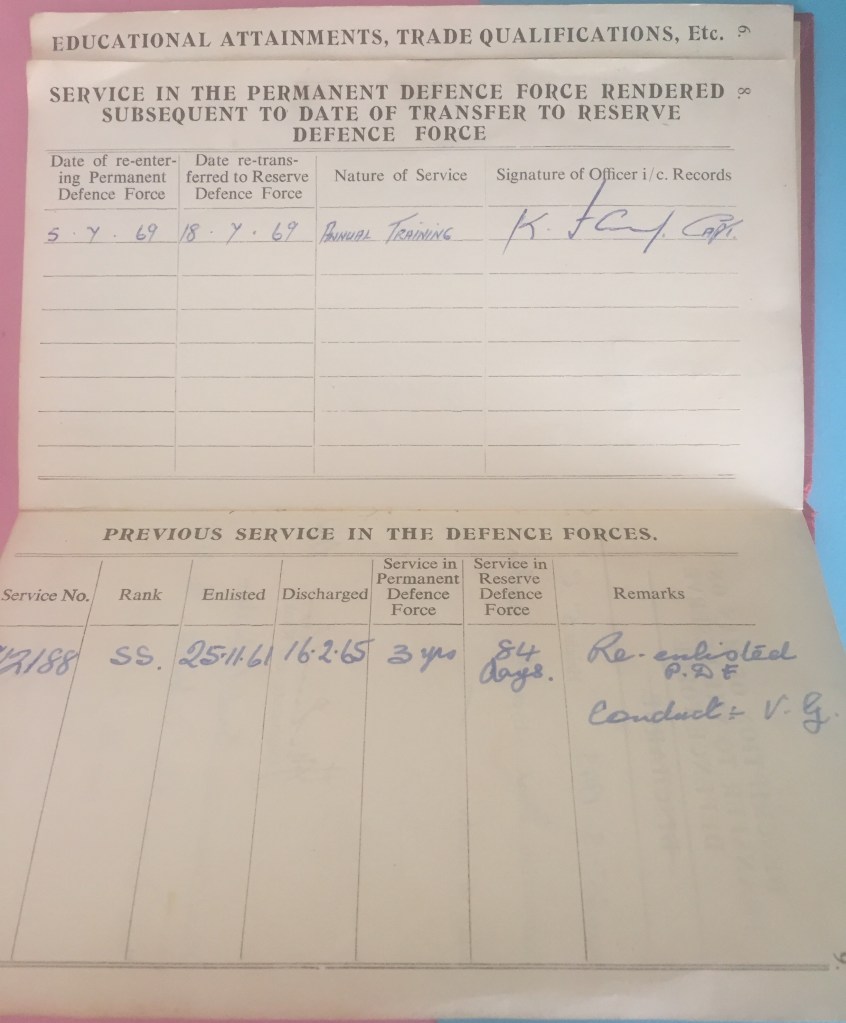 EDUCATIONAL ATTAINMENTS, TRADE QUALIFICATIONS, Etc. 9
SERVICE IN THE PERMANENT DEFENCE FORCE RENDERED 8
SUBSEQUENT TO DATE OF TRANSFER TO RESERVE
DEFENCE FORCE
Date of re-enter-
ing Permanent
Defence Force
Date re-trans-
ferred to Reserve
Defence Force
Nature of Service
Signature of Officer i/c. Records
5 . 7 . 69 18 . 7 . 69 ANNUAL TRAINING K. CAPT.
PREVIOUS SERVICE IN THE DEFENCE FORCES.
Service No.
Rank
Enlisted
Discharged
Service in
Permanent
Defence
Force
Service in
Reserve
Defence
Force
Remarks
SS. 25.11.61 16.2.65 3 yrs 84 Re-enlisted
days. P.D F
Conduct:- V. G.